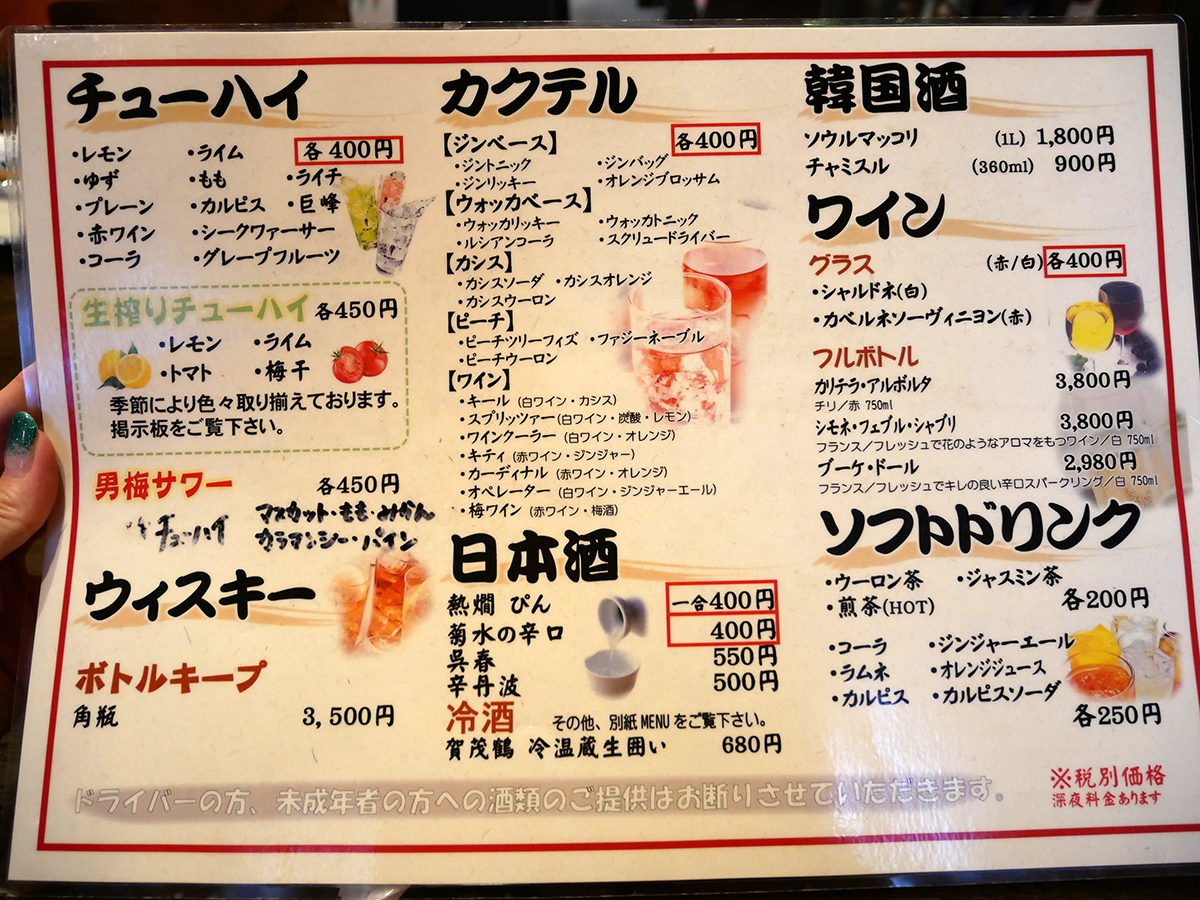 チューハイ
各400円
・レモン ・ライム
・ゆず ・もも ・ライチ
・プレーン ・カルピス ・巨峰
・赤ワイン ・シークヮーサー
・コーラ ・グレープフルーツ
生搾りチューハイ 各450円
・レモン ・ライム
・トマト ・梅干
季節により色々取り揃えております。
掲示板をご覧下さい。
男梅サワー 各450円
チューハイ マスカット・もも・みかん
カラマンシー・パイン
ウィスキー
ボトルキープ
角瓶 3,500円
カクテル
【ジンベース】 各400円
・ジントニック ・ジンバッグ
・ジンリッキー ・オレンジブロッサム
【ウォッカベース】
・ウォッカリッキー ・ウォッカトニック
・ルシアンコーラ ・スクリュードライバー
【カシス】
・カシスソーダ ・カシスオレンジ
・カシスウーロン
【ピーチ】
・ピーチツリーフィズ ・ファジーネーブル
・ピーチウーロン
【ワイン】
・キール (白ワイン・カシス)
・スプリッツァー (白ワイン・炭酸・レモン)
・ワインクーラー (白ワイン・オレンジ)
・キティ (赤ワイン・ジンジャー)
・カーディナル (赤ワイン・オレンジ)
・オペレーター (白ワイン・ジンジャーエール)
・梅ワイン (赤ワイン・梅酒)
日本酒
熱燗 ぴん 一合400円
菊水の辛口 400円
呉春 550円
辛丹波 500円
冷酒 その他、別紙MENUをご覧下さい。
賀茂鶴 冷温蔵生囲い 680円
韓国酒
ソウルマッコリ (1L) 1,800円
チャミスル (360ml) 900円
ワイン
グラス (赤/白) 各400円
・シャルドネ(白)
・カベルネソーヴィニヨン(赤)
フルボトル
カリテラ・アルボルタ 3,800円
チリ/赤 750ml
シモネ・フェブル・シャブリ 3,800円
フランス/フレッシュで花のようなアロマをもつワイン/白 750ml
ブーケ・ドール 2,980円
フランス/フレッシュでキレの良い辛口スパークリング/白 750ml
ソフトドリンク
・ウーロン茶 ・ジャスミン茶
・煎茶(HOT) 各200円
・コーラ ・ジンジャーエール
・ラムネ ・オレンジジュース
・カルピス ・カルピスソーダ
各250円
※税別価格
深夜料金あります
ドライバーの方、未成年者の方への酒類のご提供はお断りさせていただきます。